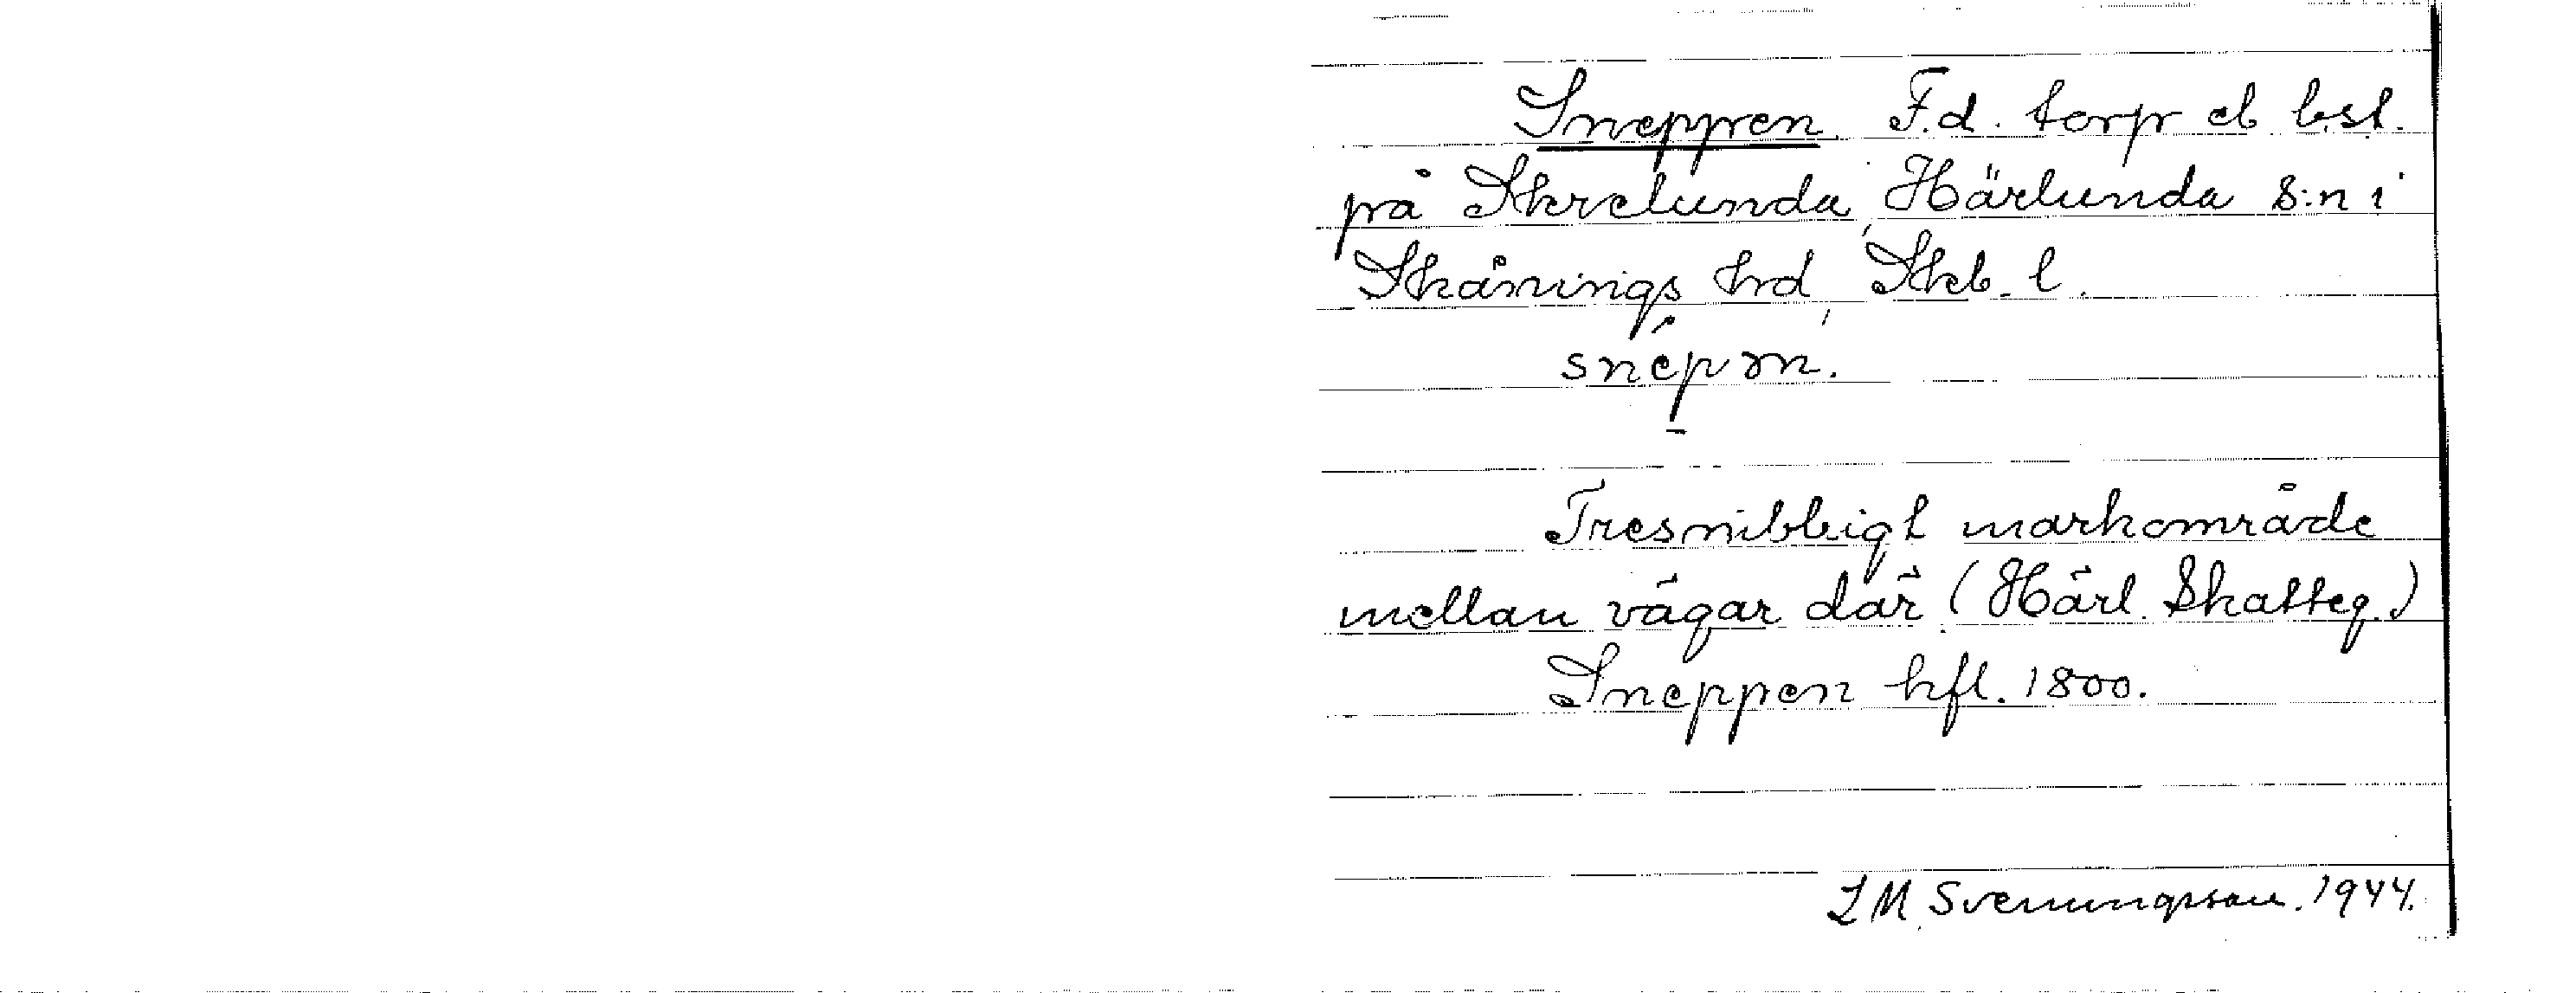 Sneppen. F.d. torp el bst.
på Skrelunda, Härlunda s:n i
Skånings hrd, Skb. l.
snépən.
Tresnibbigt markområde
mellan vägar där (Härl. Skatteg.)
Sneppen hfl. 1800.
L M Svenungsson. 1944.